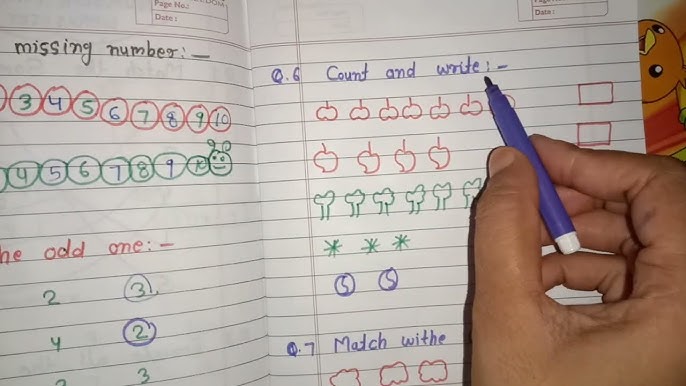 Page No.:
Date :
Date :
missing number:-
3 4 5 6 7 8 9 10
4 5 6 7 8 9
he odd one:-
2 3
4 2
3
Q.6 Count and write:-
5 5
Q.7 Match withe